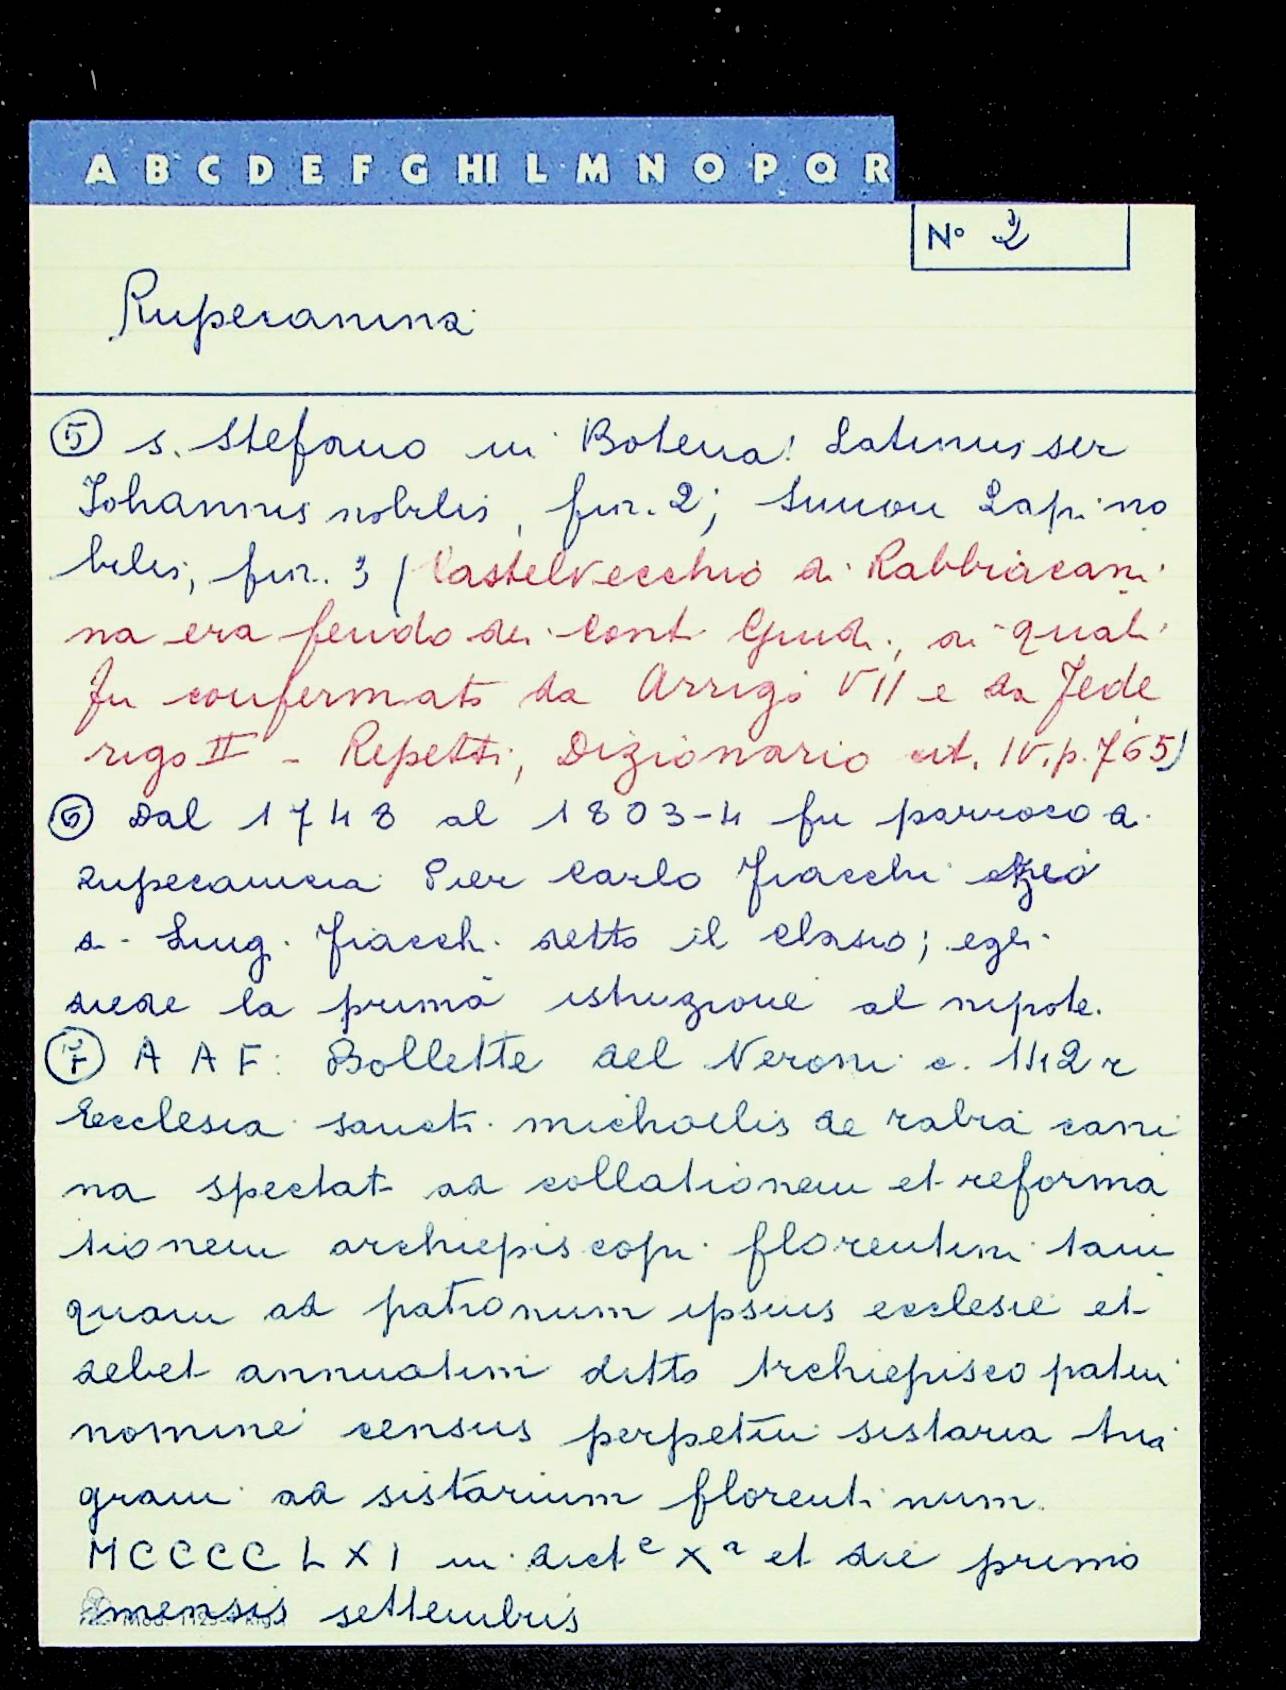 A B C D E F G HI L M N O P Q R
N° 2
Rupecanina
5 s. Stefano in Botena: Latinus ser
Johannis nobilis, fior. 2; Simon Lapi no
bilis, fior. 3 (Castelvecchio di Rabbiacani
na era feudo dei Conti Guidi, ai quali
fu confermato da Arrigo VII e da Fede
rigo II - Repetti, Dizionario cit. IV. p. 765)
6 Dal 1748 al 1803-4 fu parroco a
Rupecanina Pier Carlo Fiacchi zio
di Luigi Fiacchi detto il Clasio; egli
diede la prima istruzione al nipote.
7 A A F: Bollette del Neroni c. 142 r
Ecclesia sancti michaelis de rabia cani
na spectat ad collationem et reforma
tionem archiepiscopi florentini tam
quam ad patronum ipsius ecclesie et
debet annuatim ditto Archiepiscopatui
nomine census perpetui sistaria tria
grani ad sistarium florentinum.
MCCCCLXI in dicte Xa et die primo
mensis settembris